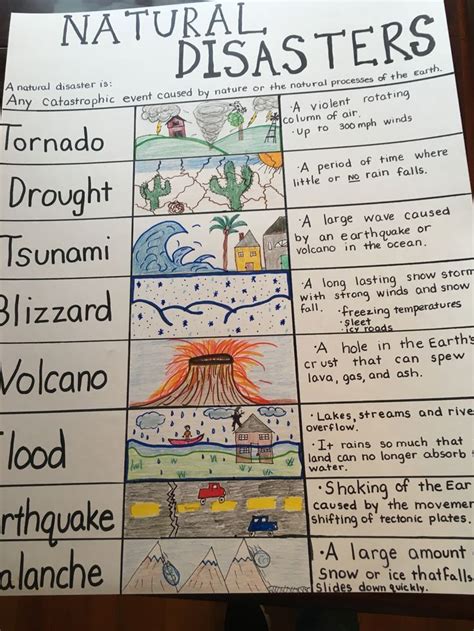 NATURAL
DISASTERS
A natural disaster is:
Any catastrophic event caused by nature or the natural processes of the Earth.
Tornado
·A violent rotating
column of air.
·Up to 300 mph winds
Drought
·A period of time where
little or no rain falls.
Tsunami
·A large wave caused
by an earthquake or
volcano in the ocean.
Blizzard
·A long lasting snow storm
with strong winds and snow
fall.
·freezing temperatures
·sleet
·icy roads
Volcano
·A hole in the Earth's
crust that can spew
lava, gas, and ash.
lood
·Lakes, streams and rive
overflow.
·It rains so much that
land can no longer absorb
water.
rthquake
·Shaking of the Ear
caused by the movemen
shifting of tectonic plates.
alanche
·A large amount
snow or ice that falls
slides down quickly.